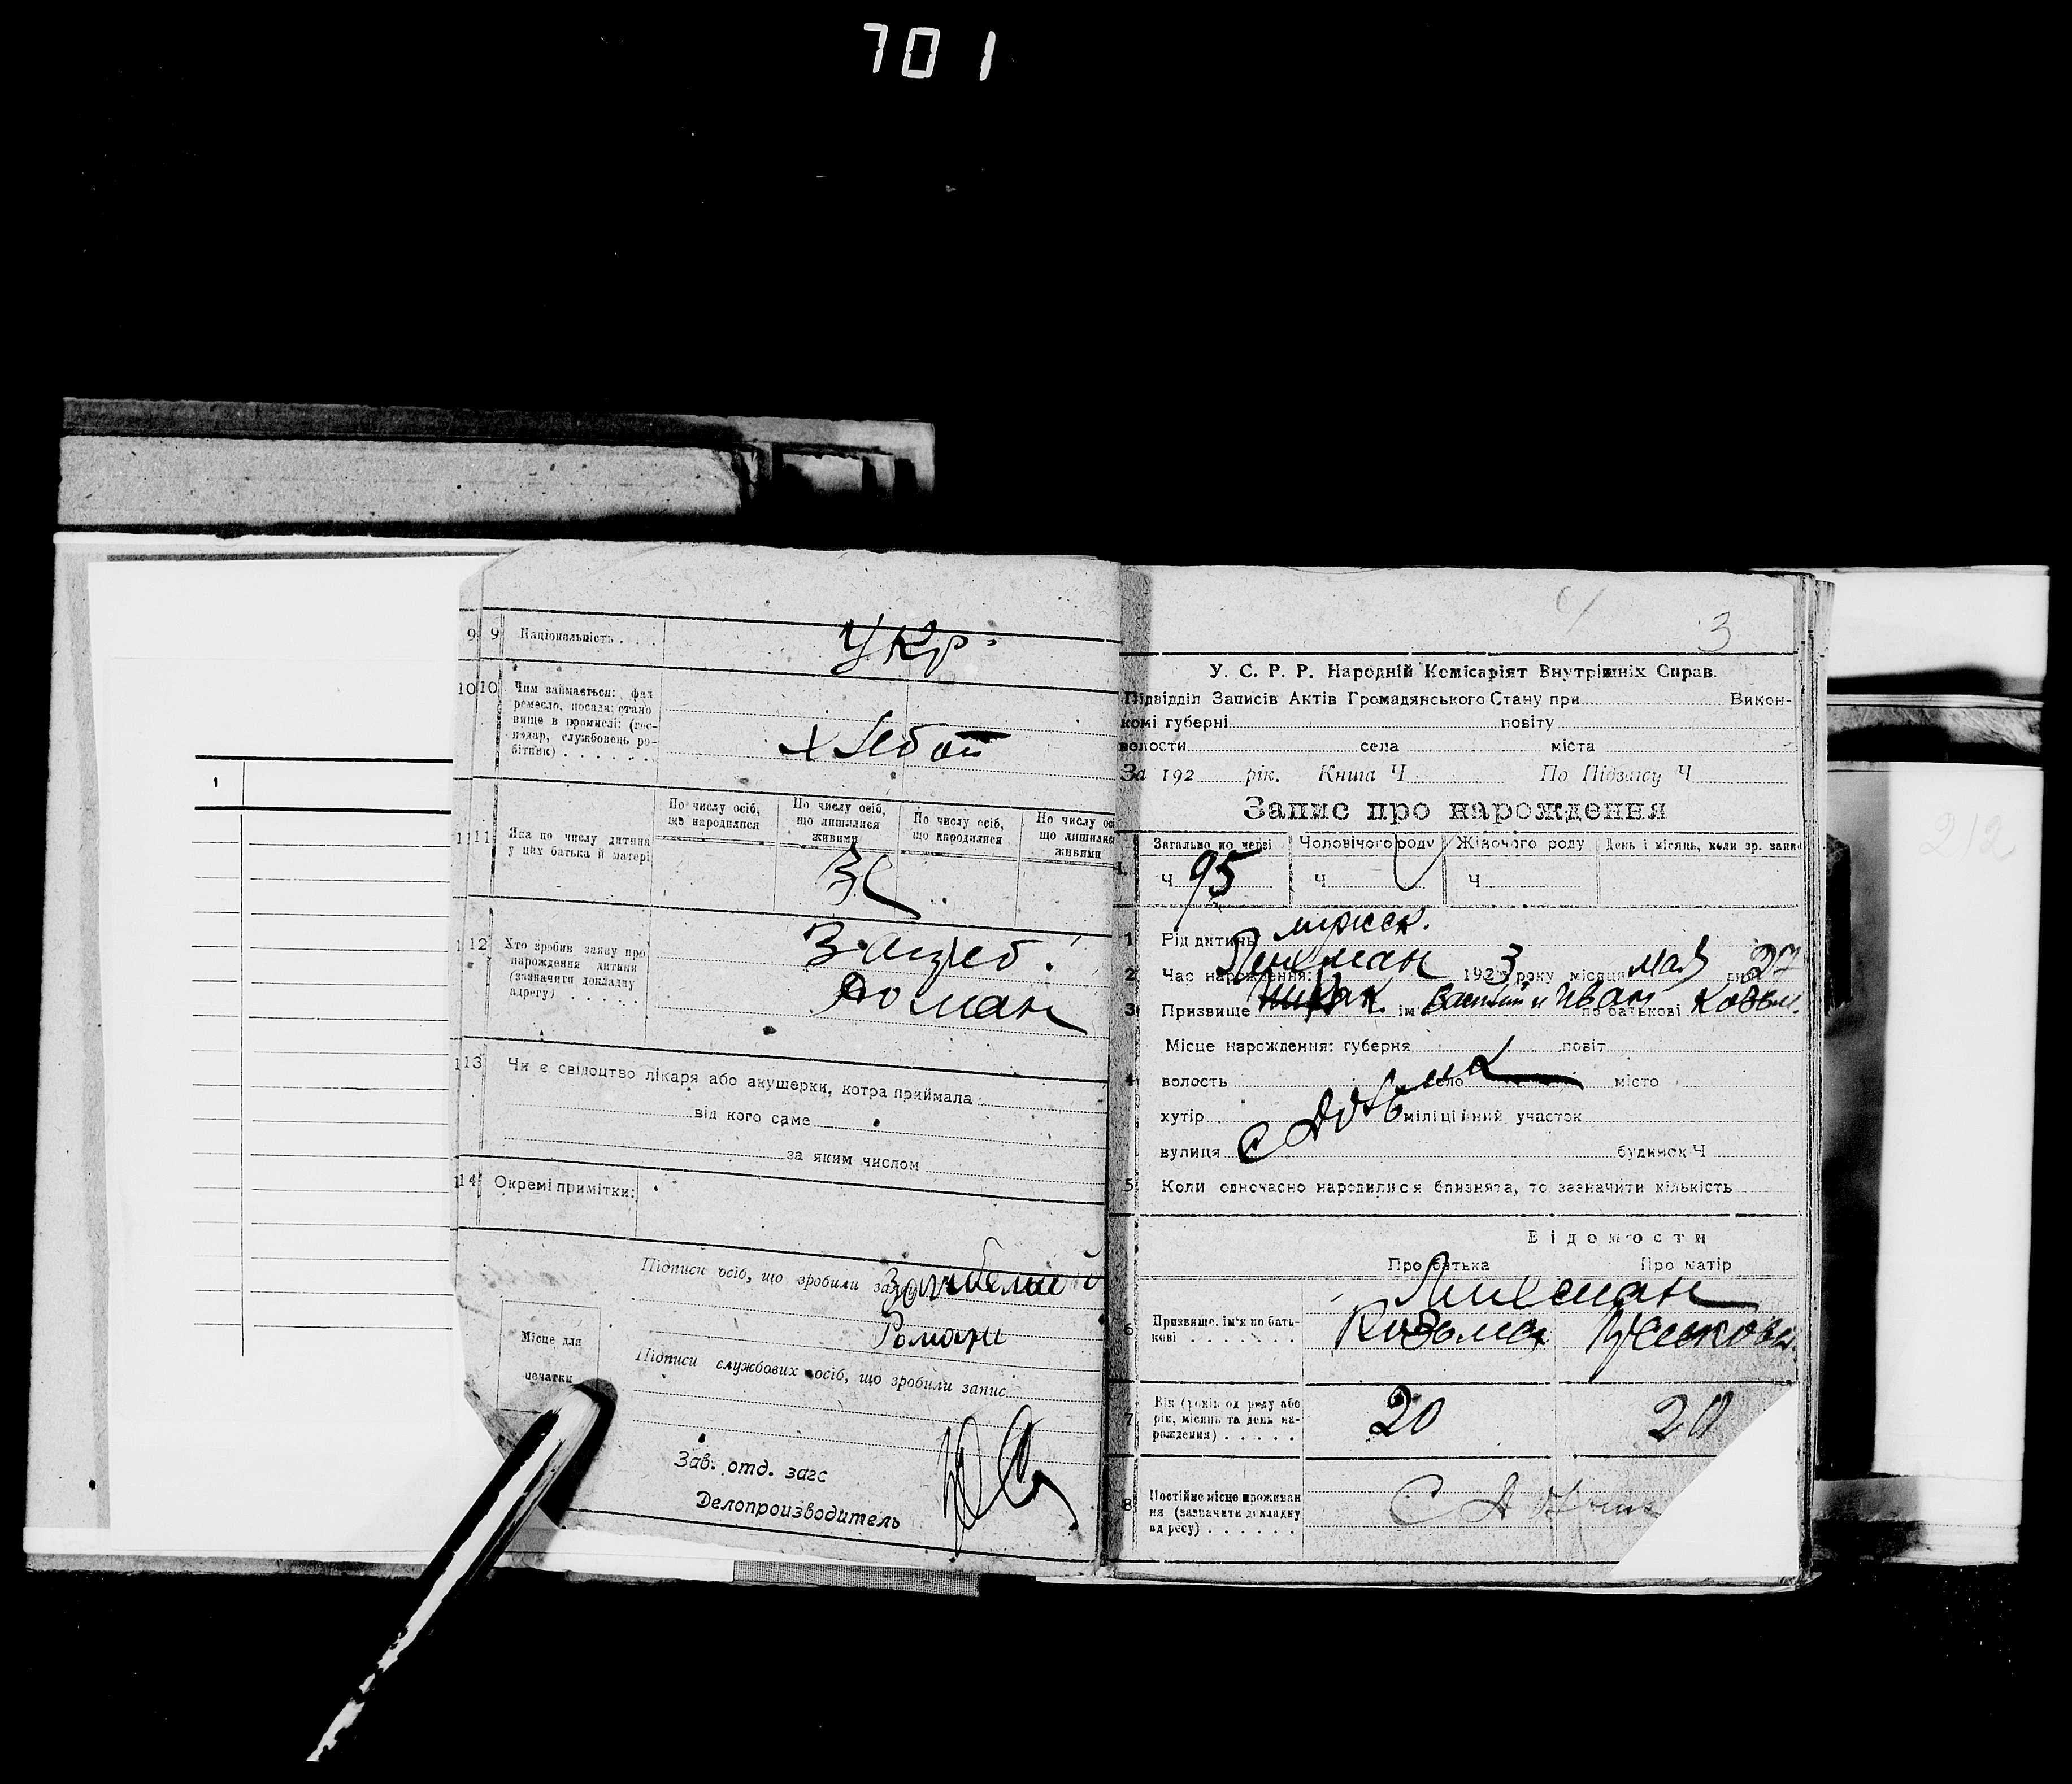 701
9 9 Національність . . . Укр.
10 10 Чим займається: фах
ремесло, посада; стано
вище в промислі: (гос-
подар, службовець ро-
бітник) . . . . . .
11 11 Яка по числу дитина
у цих батька й матері
По числу осіб,
що народилися
По числу осіб,
що лишилися
живими
По числу осіб,
що народилися
По числу ос
що лишилис
живими
12 Хто зробив заяву про
нарождення дитини
(зазначити докладну
адресу) . . . . .
Роман
13 Чи є свідоцтво лікаря або акушерки, котра приймала
від кого саме
за яким числом
14 Окремі примітки:
Підписи осіб, що зробили заяву
Роман
Місце для
печатки
Підписи службових осіб, що зробили запис
Зав. отд. загс
Делопроизводитель
1
3
У. С. Р. Р. Народній Комісаріят Внутрішніх Справ.
Підвідділ Записів Актів Громадянського Стану при Викон-
комі губерні повіту
волости села міста
За 192 рік. Книга Ч По Підпису Ч
Запис про нарождення
Загально по черзі Чоловічого роду Жіночого роду День і місяць, коли зр. запис
Ч 95 Ч Ч
1 Рід дитини мужск.
2 Час нарождення: 1923 року місяця мая дня 27
3 Призвище ім Василий и Иван по батькові Козьм.
Місце нарождення: губерня повіт
4 волость село місто
хутір міліційний участок
вулиця С будинок Ч
5 Коли одночасно народилися близнята, то зазначити кількість
Відомости
Про батька Про матір
6 Призвище, ім'я по бать-
кові . . . . . . Козьма
7 Вік (років од роду або
рік, місяць та день на-
рождення) . . . . . 20 20
8 Постійне місце проживан
ня (зазначити докладну
адресу) . . . . . . С
212